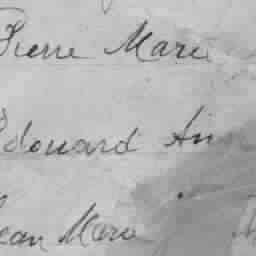 Pierre Marie
Edouard
Jean Marie